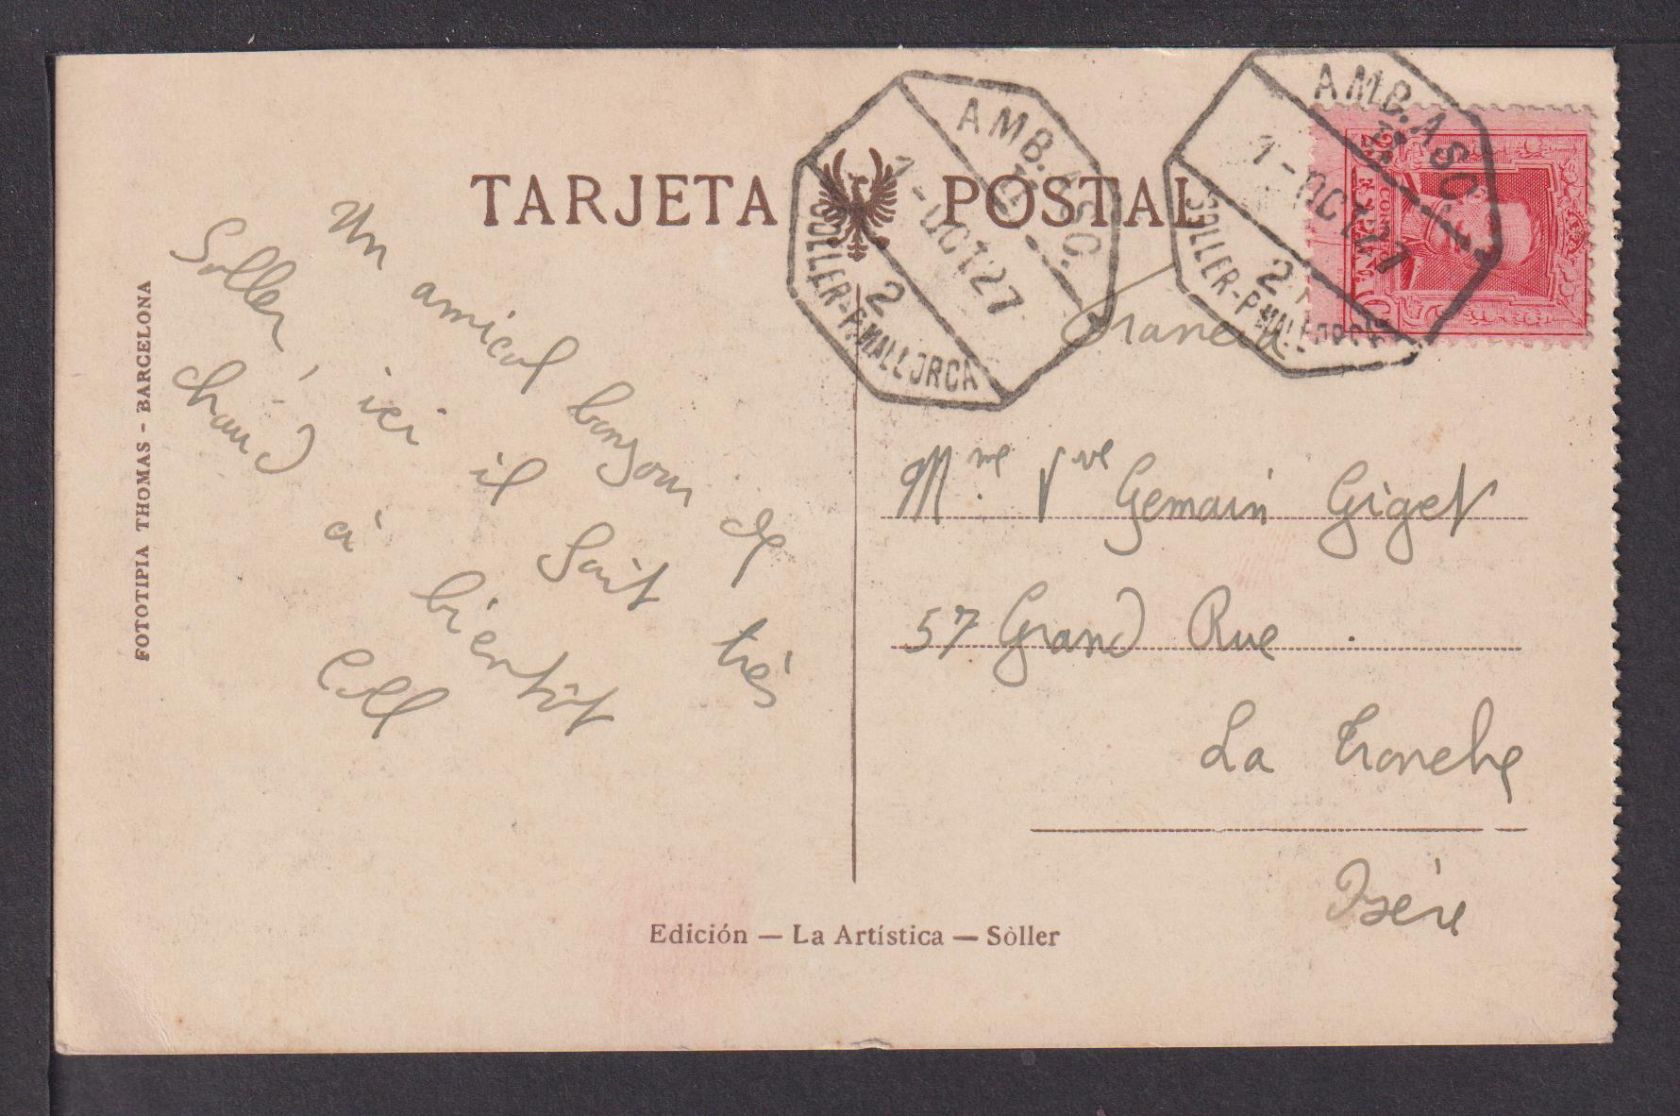 TARJETA POSTAL
AMB. ASC.
1-OCT 27
2
SOLLER-P. MALLORCA
AMB. ASC.
1-OCT 27
2
SOLLER-P. MALLORCA
CORREOS
ESPAÑA
FOTOTIPIA THOMAS - BARCELONA
Un amical bonjour de
Soller, ici il fait très
chaud à bientôt
Mme Vve Gemain Giget
57 Grand Rue.
La Tronche
Isère
Edición — La Artística — Sòller